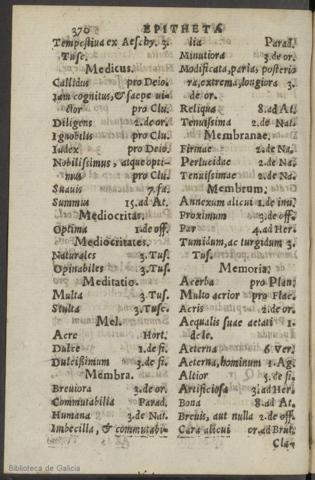 370 EPITHETA
Tempestiua ex Aeschy. 3.
Tusc.
Medicus.
Callidus pro Deio.
Iam cognitus, & saepe vi-
ctor pro Clu.
Diligens 2. de or.
Ignobilis pro Clu.
Iudex pro Deio.
Nobilissimus, atque opti-
mus pro Clu.
Suauis 7. fa.
Summus 15. ad At.
Mediocritas.
Optima 1. de off.
Mediocritates.
Naturales 3. Tus.
Opinabiles 3. Tus.
Meditatio.
Multa 3. Tus.
Stulta 3. Tusc.
Mel.
Acre Hort.
Dulce 1. de fi.
Dulcissimum 3. de fi.
Membra.
Breuiora 3. de or.
Commutabilia Parad.
Humana 3. de Nat.
Imbecilla, & commutabi-
lia Parad.
Minutiora 3. de or.
Modificata, paria, posterio
ra, extrema, longiora 3.
de or.
Reliqua 8. ad At.
Tenuissima 2. de Nat.
Membranae.
Firmae 2. de Na.
Perlucidae 2. de Na.
Tenuissimae 2. de Na.
Membrum.
Annexum alicui 1. de inu.
Proximum 3. de off.
Par 4. ad Her.
Tumidum, ac turgidum 3.
Tus.
Memoria.
Acerba pro Plan.
Multo acrior pro Flac.
Acris 2. de or.
Aequalis suae aetati 1.
de le.
Aeterna 6 Ver.
Aeterna, hominum 1. Ag.
Altior 3. de fi.
Artificiosa 3. ad Her.
Bona 8. ad At.
Breuis, aut nulla 2. de off.
Cara alicui or. ad Brut.
Cla-
Biblioteca de Galicia